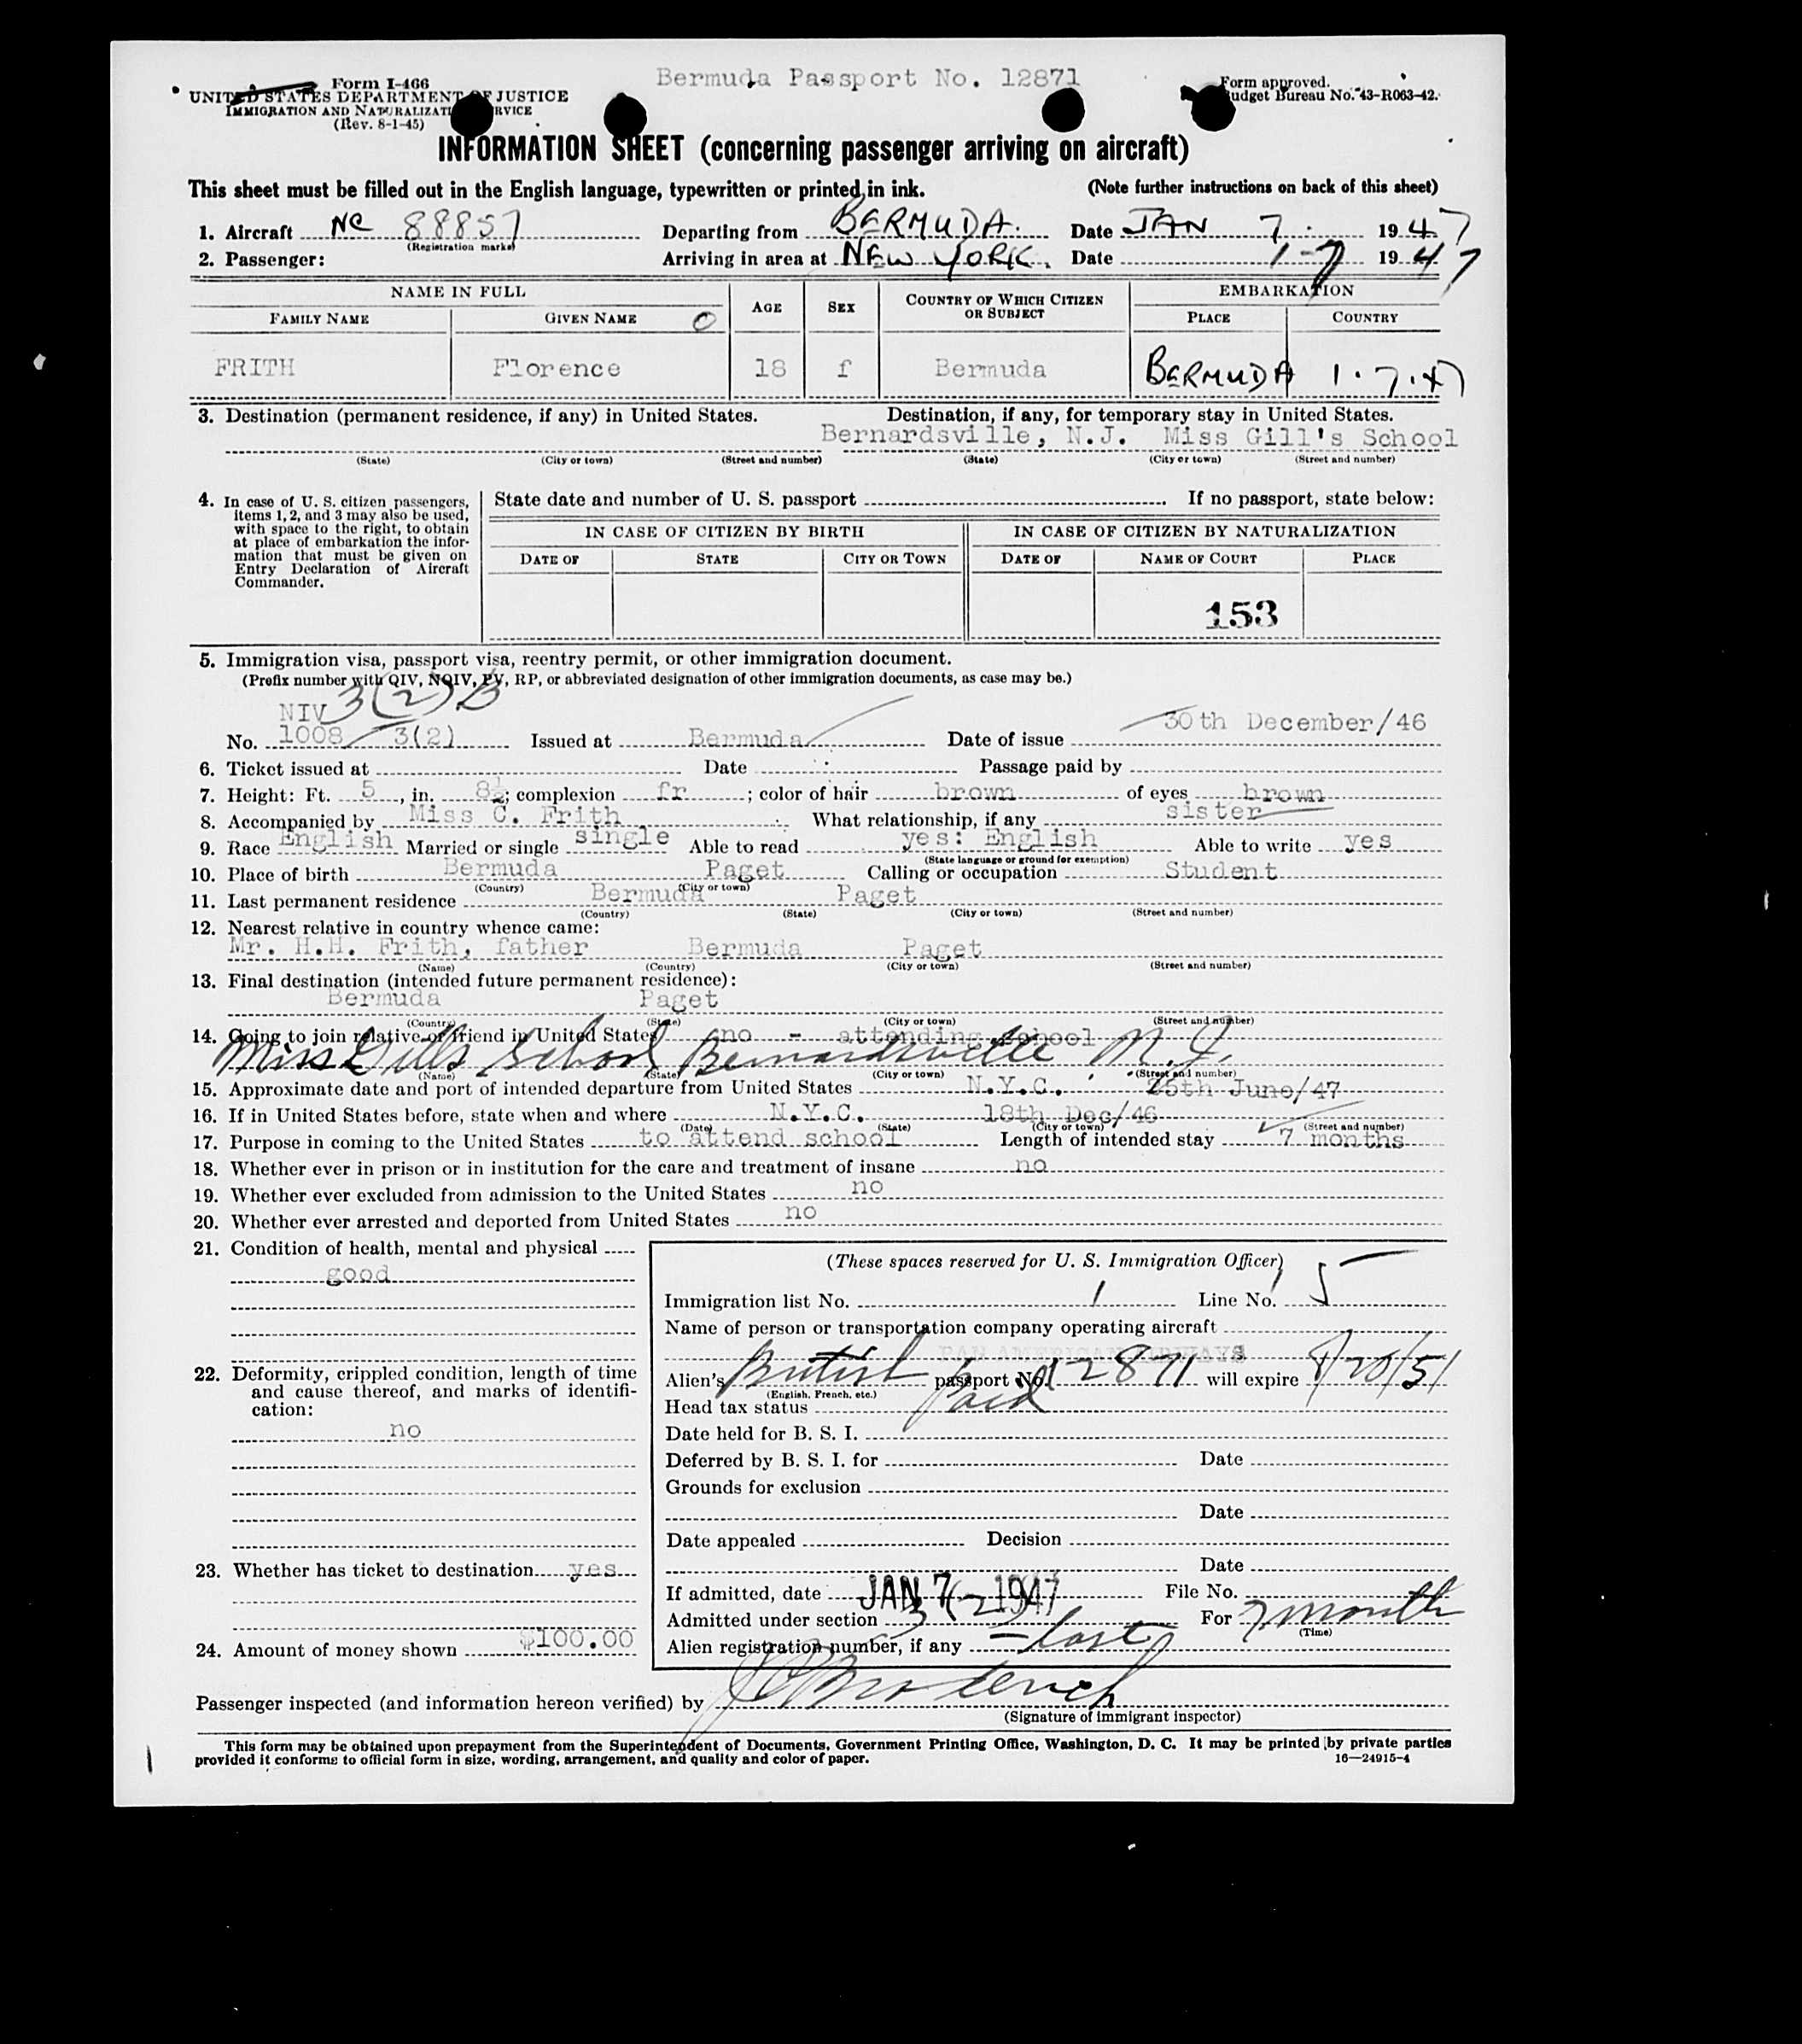 Form I-466
UNITED STATES DEPARTMENT OF JUSTICE
IMMIGRATION AND NATURALIZATION SERVICE
(Rev. 8-1-45)
Bermuda Passport No. 12871
Form approved.
Budget Bureau No. 43-R063-42.
INFORMATION SHEET (concerning passenger arriving on aircraft)
This sheet must be filled out in the English language, typewritten or printed in ink. (Note further instructions on back of this sheet)
1. Aircraft NC 88857 Departing from BERMUDA. Date JAN 7. 1947
(Registration marks)
2. Passenger: Arriving in area at NEW YORK. Date 1-7 1947
NAME IN FULL AGE SEX COUNTRY OF WHICH CITIZEN OR SUBJECT EMBARKATION
FAMILY NAME GIVEN NAME PLACE COUNTRY
FRITH Florence 18 f Bermuda BERMUDA 1.7.47
3. Destination (permanent residence, if any) in United States. Destination, if any, for temporary stay in United States.
Bernardsville, N.J. Miss Gill's School
(State) (City or town) (Street and number) (State) (City or town) (Street and number)
4. In case of U. S. citizen passengers, items 1, 2, and 3 may also be used, with space to the right, to obtain at place of embarkation the information that must be given on Entry Declaration of Aircraft Commander.
State date and number of U. S. passport If no passport, state below:
IN CASE OF CITIZEN BY BIRTH IN CASE OF CITIZEN BY NATURALIZATION
DATE OF STATE CITY OR TOWN DATE OF NAME OF COURT PLACE
153
5. Immigration visa, passport visa, reentry permit, or other immigration document.
(Prefix number with QIV, NQIV, PV, RP, or abbreviated designation of other immigration documents, as case may be.)
NIV 3(2)B
No. 1008 3(2) Issued at Bermuda Date of issue 30th December/46
6. Ticket issued at Date Passage paid by
7. Height: Ft. 5, in. 8½; complexion fr; color of hair brown of eyes brown
8. Accompanied by Miss C. Frith What relationship, if any sister
9. Race English Married or single single Able to read yes: English Able to write yes
(State language or ground for exemption)
10. Place of birth Bermuda Paget Calling or occupation Student
(Country) (City or town)
11. Last permanent residence Bermuda Paget
(Country) (State) (City or town) (Street and number)
12. Nearest relative in country whence came:
Mr. H.H. Frith, father Bermuda Paget
(Name) (Country) (City or town) (Street and number)
13. Final destination (intended future permanent residence):
Bermuda Paget
(Country) (State) (City or town) (Street and number)
14. Going to join relative or friend in United States no - attending school
Miss Gills School Bernardsville N.J.
(Name) (State) (City or town) (Street and number)
15. Approximate date and port of intended departure from United States N.Y.C. 25th June/47
16. If in United States before, state when and where N.Y.C. 18th Dec/46
(Date) (State) (City or town) (Street and number)
17. Purpose in coming to the United States to attend school Length of intended stay 7 months
18. Whether ever in prison or in institution for the care and treatment of insane no
19. Whether ever excluded from admission to the United States no
20. Whether ever arrested and deported from United States no
21. Condition of health, mental and physical
good
22. Deformity, crippled condition, length of time and cause thereof, and marks of identification:
no
23. Whether has ticket to destination yes
24. Amount of money shown $100.00
(These spaces reserved for U. S. Immigration Officer)
Immigration list No. 1 Line No. 5
Name of person or transportation company operating aircraft
PAN AMERICAN AIRWAYS
Alien's British passport No. 12871 will expire 8/20/51
(English, French, etc.)
Head tax status Paid
Date held for B. S. I.
Deferred by B. S. I. for Date
Grounds for exclusion
Date
Date appealed Decision
Date
If admitted, date JAN 7 - 1947 File No.
Admitted under section 3(2) For 7 month
(Time)
Alien registration number, if any
Passenger inspected (and information hereon verified) by
(Signature of immigrant inspector)
This form may be obtained upon prepayment from the Superintendent of Documents, Government Printing Office, Washington, D. C. It may be printed by private parties
provided it conforms to official form in size, wording, arrangement, and quality and color of paper. 16—24915-4